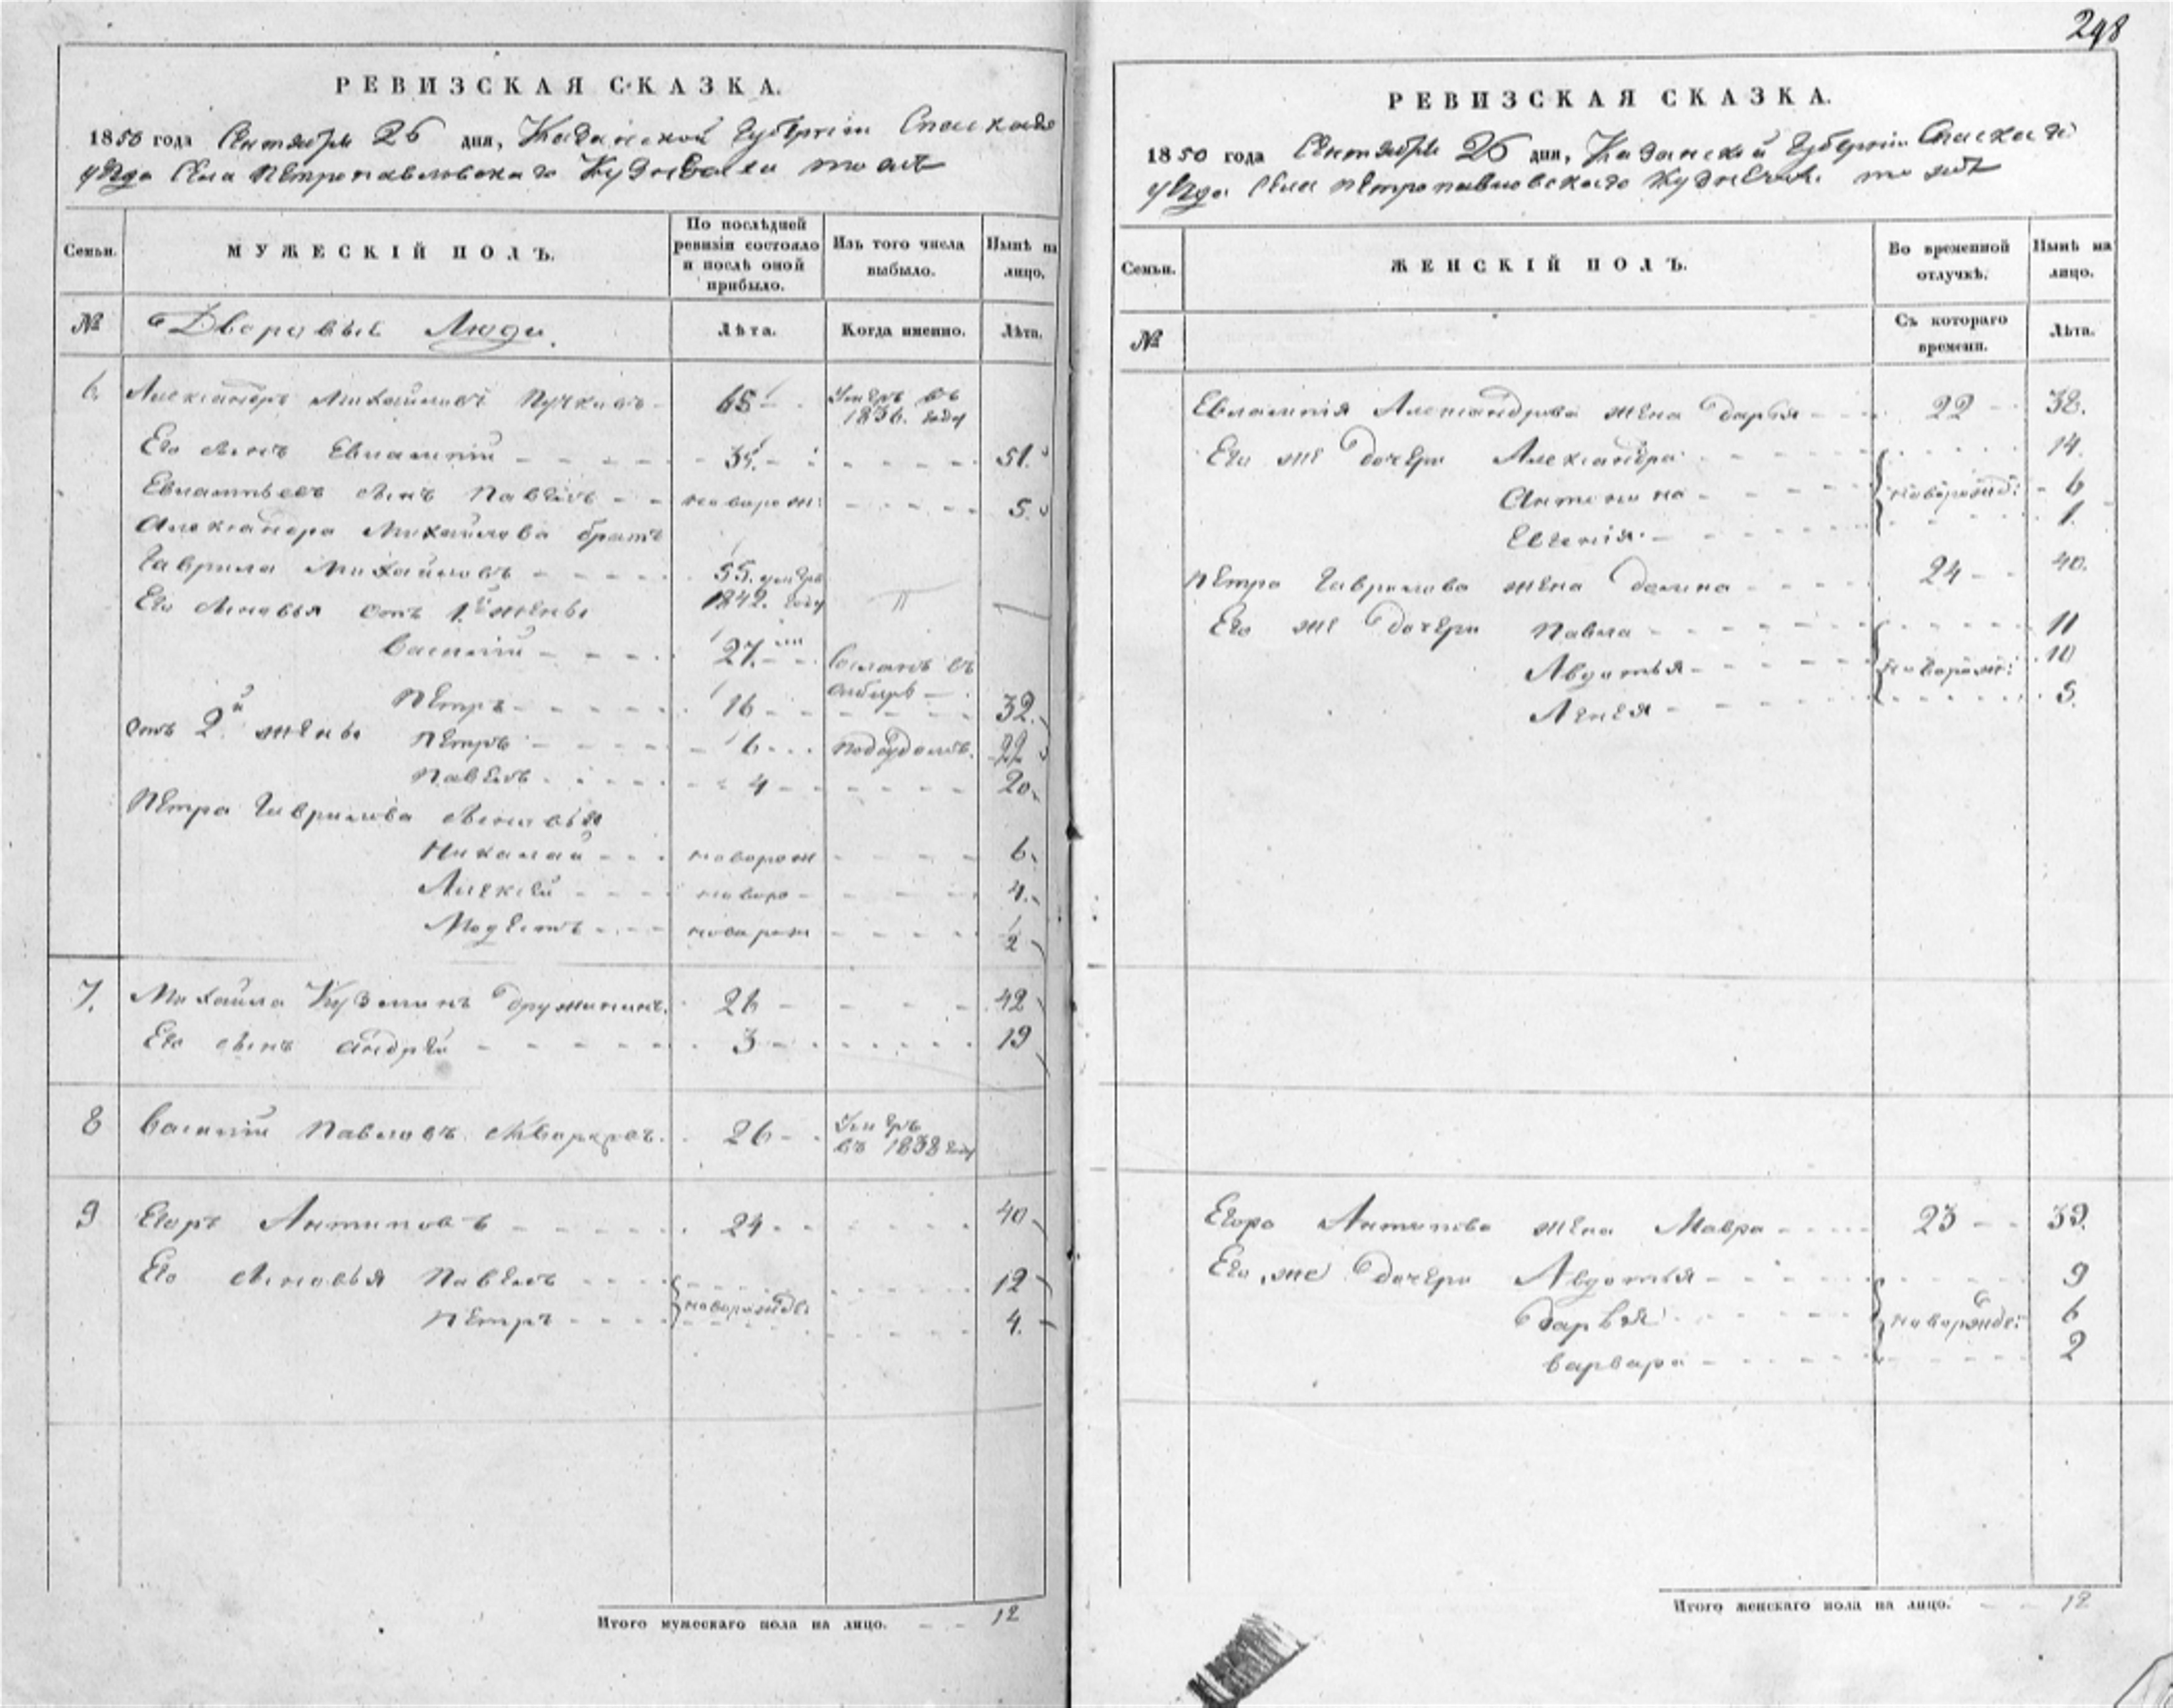 298
РЕВИЗСКАЯ СКАЗКА.
1850 года Сентября 26 дня, Казанской Губернии Спаскаго
уѣзда Села Петропавловскаго тожъ
Семьи.
МУЖЕСКІЙ ПОЛЪ.
По послѣдней ревизіи состояло и послѣ оной прибыло.
Изъ того числа выбыло.
Нынѣ на лицо.
№
Дворовые Люди.
Лѣта.
Когда именно.
Лѣта.
6. Александръ Михайловъ Пучковъ 65 Умеръ въ
1836. году
Его сынъ Евлампій 35. 51.
Евлампьевъ сынъ Павелъ новорож: 5.
Александра Михайлова братъ
Гаврила Михайловъ 55. умеръ
Его сыновья отъ 1.й жены 1842. году
Василій 27. Сосланъ въ
сибирь
Петръ 16 32.
отъ 2й жены Петръ 6 22
Павелъ 4 20.
Петра Гаврилова сыновья
Николай новорож 6.
Алексѣй новоро 4.
Модестъ новорож 1/2
7. Михайла Кузминъ Дружининъ. 26 42
Его сынъ Андрей 3 19
8 Василій Павловъ 26 Умеръ
въ 1838 году
9 Егоръ Антиповъ 24 40
Его сыновья Павелъ 12
новорожд:
Петръ 4.
Итого мужескаго пола на лицо. 12
РЕВИЗСКАЯ СКАЗКА.
1850 года Сентября 26 дня, Казанской Губерніи Спаскаго
уѣзда Села Петропавловскаго тожъ
Семьи.
ЖЕНСКІЙ ПОЛЪ.
Во временной отлучкѣ.
Нынѣ на лицо.
№
Съ котораго времени.
Лѣта.
Евлампія Александрова жена Дарья 22 38.
Его же дочери Александра 14.
Антонина новорожд: 6
Евгенія 1.
Петра Гаврилова жена 24 40.
Его же дочери Павла 11
Авдотья новорож: 10
5.
Егора Антипова жена Мавра 23 39.
Его же дочери Авдотья 9
Дарья новорожде: 6
Варвара 2
Итого женскаго пола на лицо. 12